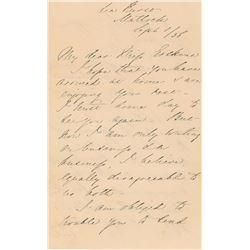 Lea Hurst
Matlock
Sept 1/58
My dear Miss
I hope that you have
arrived at home & are
enjoying your rest.
I trust some day to
see you again. But
now I am only writing
on business & a
business, I believe,
equally disagreeable to
us both.
I am obliged to
trouble you to send